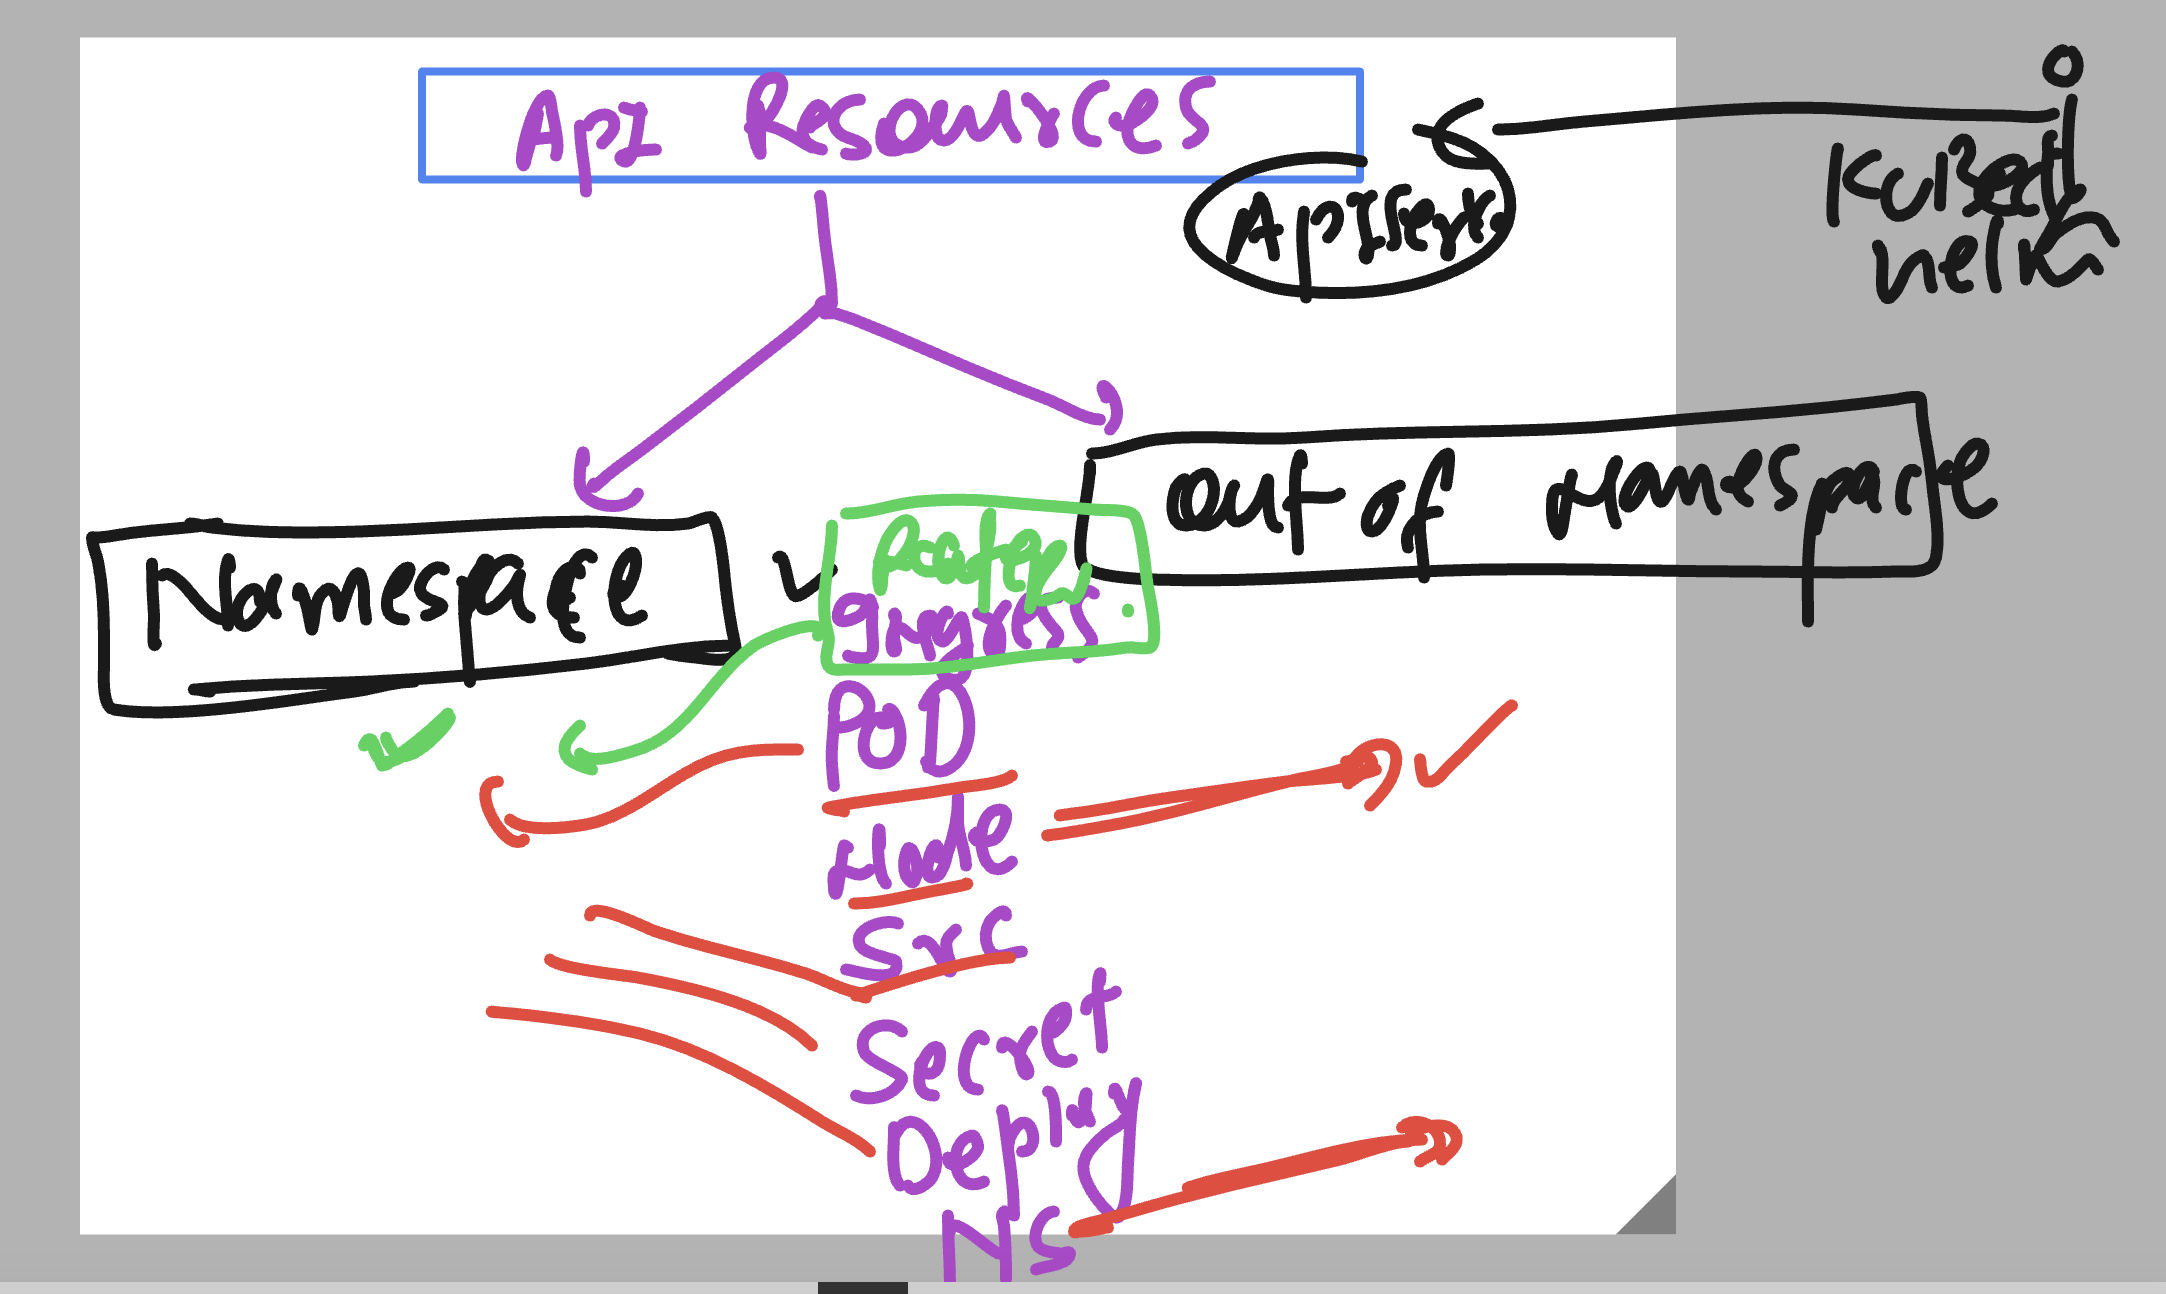 API Resources
APISerr
Kubectl
helm
Namespace
Out of Namespace
ingress
POD
Node
Svc
Secret
Deploy
NS